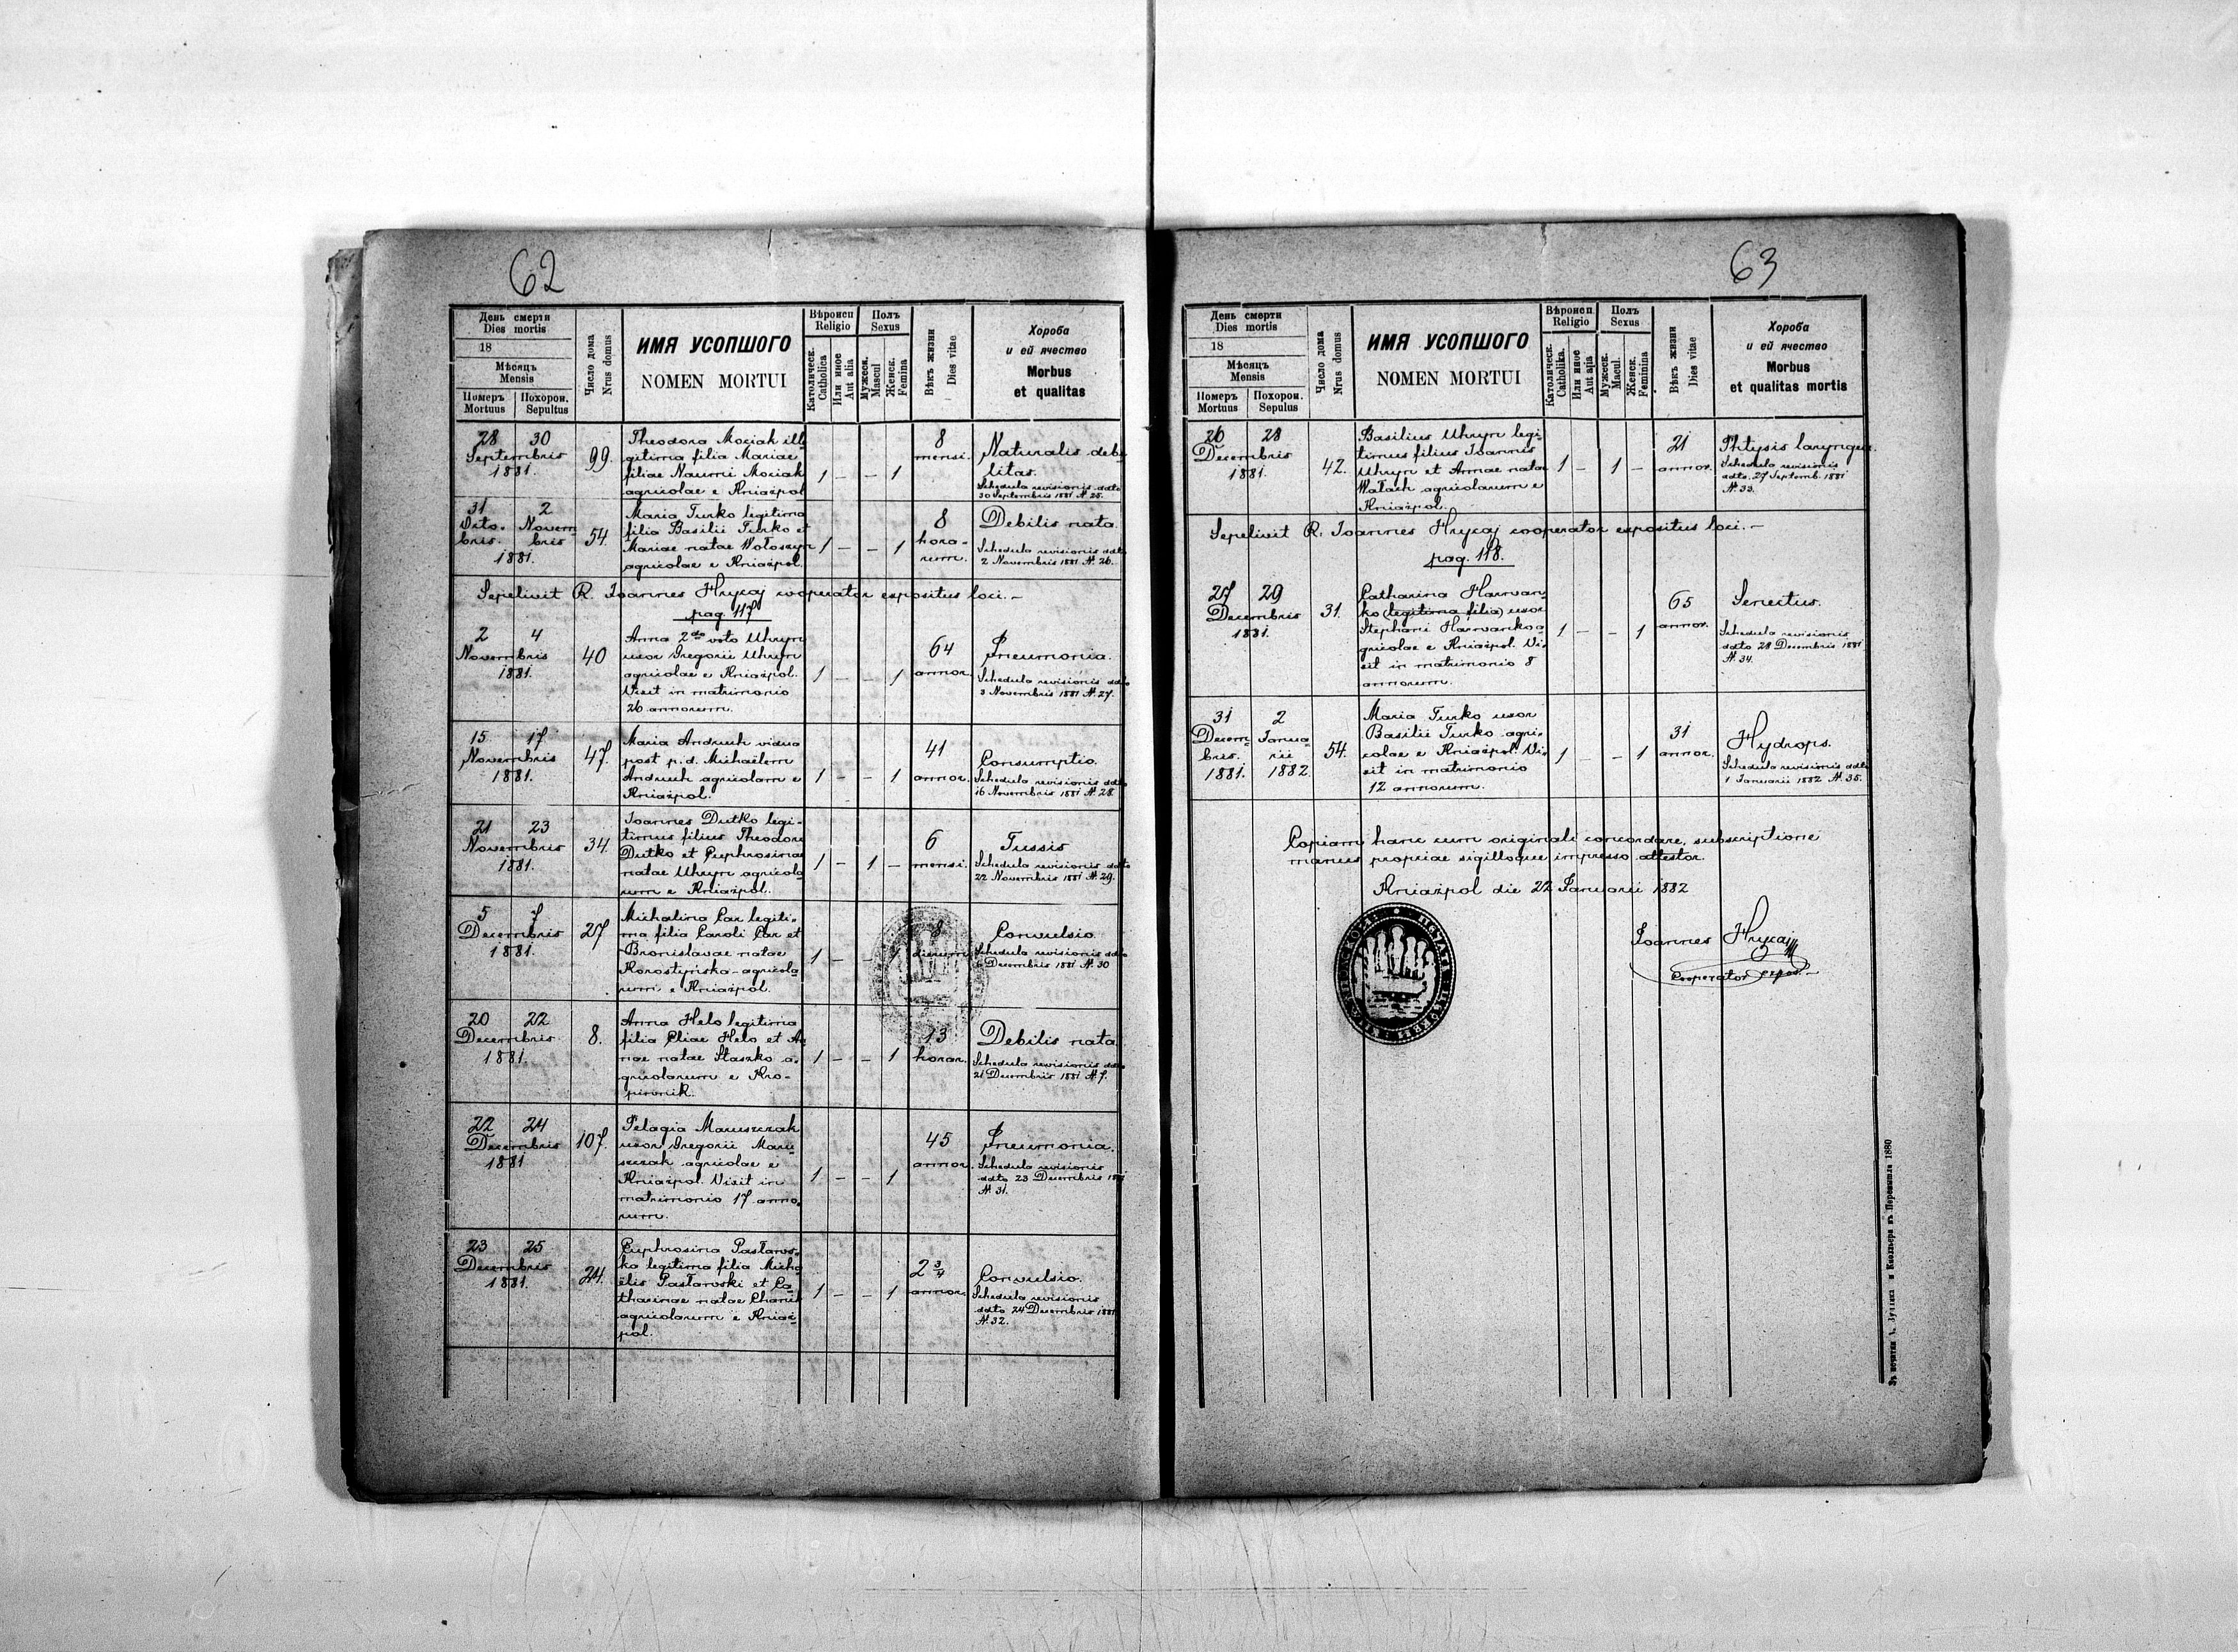 62
День смерти
Dies mortis
18
Мѣсяцъ
Mensis
Померъ Mortuus
Похорон. Sepultus
Число дома
Nrus domus
ИМЯ УСОПШОГО
NOMEN MORTUI
Вѣроисп
Religio
Католическ.
Catholica
Или иное
Aut alia
Полъ
Sexus
Мужеск.
Mascul
Женск.
Femina
Вѣкъ жизни
Dies vitae
Хороба
и ей ячество
Morbus
et qualitas
28 30
Septembris
1881.
99.
Theodora Mociak ille
gitima filia Mariae
filiae Naumi Mociak
agricolae e Kniaźpol
1 – – 1
8
mensi.
Naturalis debi
litas.
Schedula revisionis ddto
30 Septembris 1881 N. 25.
31 2
Octo- Novem
bris. bris
1881.
54.
Maria Turko legitima
filia Basilii Turko et
Mariae natae Wołoszyn
agricolae e Kniaźpol.
1 – – 1
8
hora-
rum.
Debilis nata.
Schedula revisionis ddto
2 Novembris 1881 N. 26.
Sepelivit R. Joannes Hrycaj cooperator expositus loci. –
pag. 117
2 4
Novembris
1881.
40
Anna 2do voto Uhryn
uxor Gregorii Uhryn
agricolae e Kniaźpol.
Vixit in matrimonio
26 annorum.
1 – – 1
64
annor.
Pneumonia.
Schedula revisionis ddto
3 Novembris 1881 N. 27.
15 17
Novembris
1881.
47.
Maria Andruch vidua
post p. d. Michaelem
Andruch agricolam e
Kniaźpol.
1 – – 1
41
annor.
Consumptio.
Schedula revisionis ddto
16 Novembris 1881 N. 28.
21 23
Novembris
1881.
34.
Joannes Dutko legi-
timus filius Theodori
Dutko et Euphrosinae
natae Uhryn agricola
rum e Kniaźpol.
1 – 1 –
6
mensi.
Tussis
Schedula revisionis ddto
22 Novembris 1881 N. 29.
5 7
Decembris
1881.
27
Michalina Car legiti-
ma filia Caroli Car et
Bronislavae natae
Korostyńska – agricola
rum e Kniaźpol.
1 – – 1
dierum
Convulsio.
Schedula revisionis ddto
6 Decembris 1881 N. 30
20 22
Decembris
1881.
8.
Anna Helo legitima
filia Eliae Helo et An
nae natae Staszko a-
gricolarum e Kro-
piwnik.
1 – – 1
13
horar.
Debilis nata
Schedula revisionis ddto
21 Decembris 1881 N. 7.
22 24
Decembris
1881
107.
Pelagia Maruszczak
uxor Gregorii Maru-
szczak agricolae e
Kniaźpol. Vixit in
matrimonio 17 anno-
rum.
1 – – 1
45
annor.
Pneumonia.
Schedula revisionis
ddto 23 Decembris 1881
N. 31.
23 25
Decembris
1881.
24.
Euphrosina Pasławs-
ka legitima filia Micha
elis Pasławski et Ca
tharinae natae Chanik
agricolarum e Kniaź-
pol.
1 – – 1
2 3/4
annor.
Convulsio.
Schedula revisionis
ddto 24 Decembris 1881
N. 32.
63
День смерти
Dies mortis
18
Мѣсяцъ
Mensis
Померъ Mortuus
Похорон. Sepulus
Число дома
Nrus domus
ИМЯ УСОПШОГО
NOMEN MORTUI
Вѣроисп
Religio
Католическ.
Catholika.
Или иное
Aut alia
Полъ
Sexus
Мужеск.
Macul.
Женск.
Feminina
Вѣкъ жизни
Dies vitae
Хороба
и ей ячество
Morbus
et qualitas mortis
26 28
Decembris
1881.
42.
Basilius Uhryn legi-
timus filius Joannis
Uhryn et Annae natae
Wałach agricolarum e
Kniaźpol.
1 – 1 –
21
annor.
Phtysis laryngea.
Schedula revisionis
ddto. 27 Septemb. 1881
N. 33.
Sepelivit R. Joannes Hrycaj cooperator expositus loci. –
pag. 118.
27 29
Decembris
1881.
31.
Catharina Harwan-
ko (legitima filia) uxor
Stephani Harwanko a-
gricolae e Kniaźpol. Vi-
xit in matrimonio 8
annorum.
1 – – 1
65
annor.
Senectus.
Schedula revisionis
ddto 28 Decembris 1881
N. 34.
31 2
Decem- Janua-
bris. rii
1881. 1882.
54.
Maria Turko uxor
Basilii Turko agri-
colae e Kniaźpol. Vi-
xit in matrimonio
12 annorum.
1 – – 1
31
annor.
Hydrops.
Schedula revisionis ddto
1 Januarii 1882 N. 35.
Copiam hanc cum originali concordare, subscriptione
manus propriae sigilloque impresso attestor.
Kniaźpol die 22 Januarii 1882
Joannes Hrycaj
Cooperator expos. –
1880